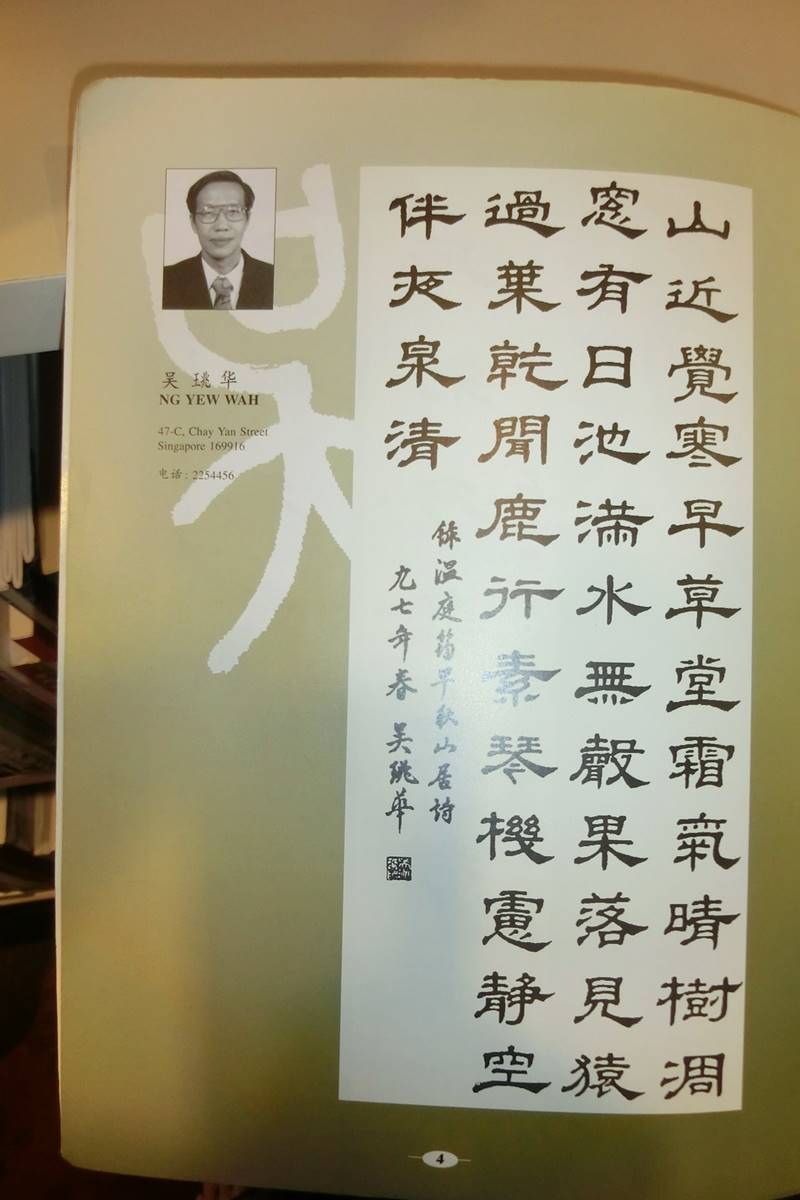 吴珧华
NG YEW WAH
47-C, Chay Yan Street
Singapore 169916
电话 : 2254456
山近覺寒早草堂霜氣晴樹凋
窓有日池滿水無聲果落見猿
過葉乾聞鹿行素琴機慮静空
伴夜泉清
錄温庭筠早秋山居詩
九七年春 吴珧華
4